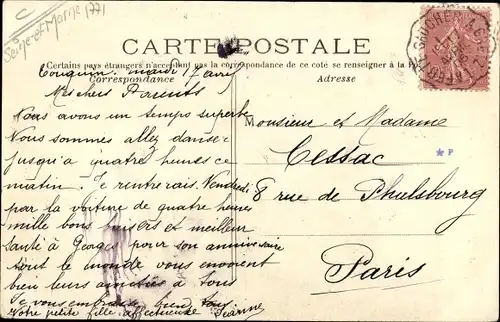 Seine-et-Marne (77)
CARTE POSTALE
Certains pays étrangers n'acceptant pas la correspondance de ce coté se renseigner à la
Correspondance
Adresse
mardi 17 avril
Mes chers Parents
Nous avons un temps superbe
Nous sommes allez danser
jusqu'a quatre heures ce
matin. Je rentrerais Vendredi
par la voiture de quatre heures
mille bons baisers et meilleur
santé à Georges pour son anniversaire
tout le monde vous envoient
bien leurs amitiés a tous
Je vous embrasse bien tous.
Votre petite fille affectueuse Jeanne
Monsieur et Madame
Cessac
8 rue de Phulsbourg
Paris